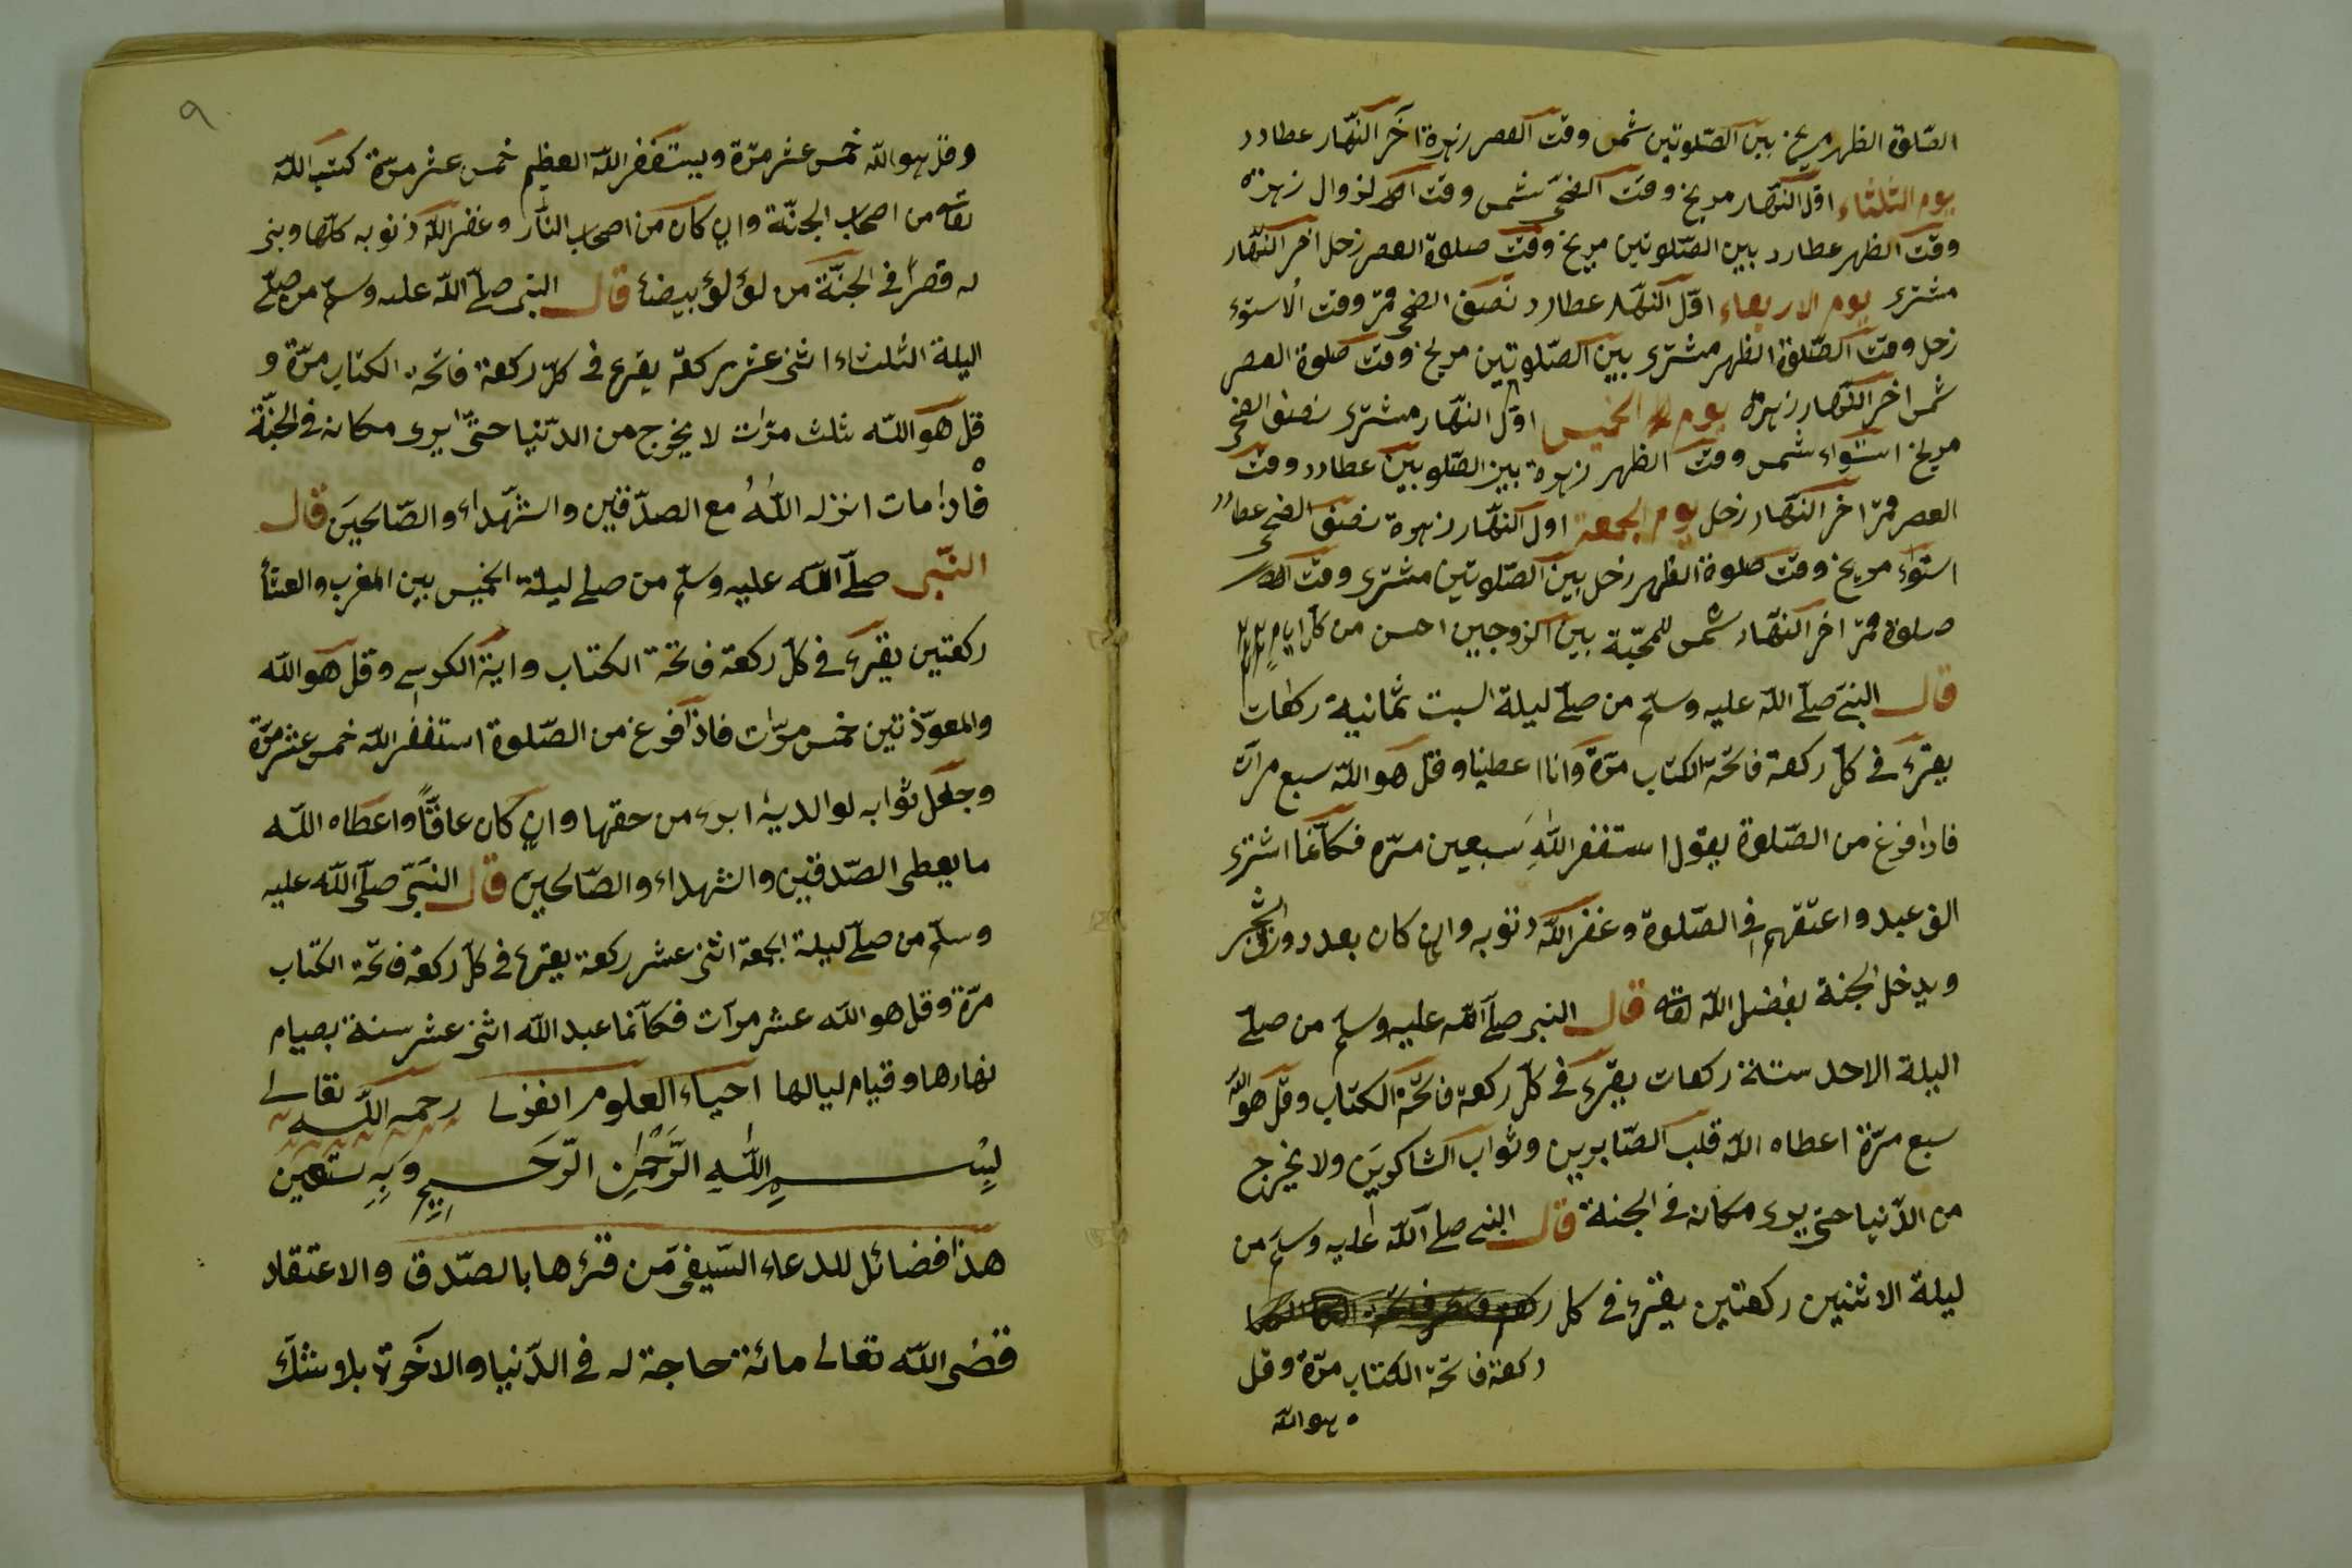 الصّلوة الظهر مريخ بين الصّلوتين شمس وقت العصر زهرة اخر النّهار عطارد
يوم الثلثاء اوّل النّهار مريخ وقت الضّحى شمس وقت الزوال زهرة
وقت الظهر عطارد بين الصّلوتين مريخ وقت صلوة العصر زحل اخر النّهار
مشترى يوم الاربعاء اوّل النّهار عطارد نصف الضحى قمر وقت الاستوء
زحل وقت الصّلوة الظهر مشترى بين الصّلوتين مريخ وقت صلوة العصر
شمس اخر النّهار زهرة يوم الخميس اوّل النهّار مشترى نصف الضحى
مريخ استواء شمس ووقت الظهر زهرة بين الصّلوتين عطارد ووقت
العصر قمر اخر النّهار زحل يوم الجمعة اول النّهار زهرة نصف الضحى عطارد
استواء مريخ وقت صلوة الظهر زحل بين الصّلوتين مشترى وقت
صلوة قمر اخر النّهار شمس للمحبّة بين الزوجين احسن من كلّ ايام
قال النبىّ صلّى اللّه عليه وسلّم من صلّى ليلة السبت ثمانية ركعات
يقرء فى كلّ ركعة فاتحة الكتاب مرّة وانا اعطينا وقل هو اللّه سبع مرآت
فاذا فرغ من الصّلوة يقول استغفر اللّه سبعين مرّه فكانّما اشترى
الف عبد واعتقهم فى الصّلوة وغفر اللّه ذنوبه وان كان بعدد ورق الشجر
ويدخل الجنة بفضل اللّه تعالى قال النبى صلّى اللّه عليه وسلّم من صلّى
اليلة الاحد ستة ركعات يقرء فى كلّ ركعة فاتحة الكتاب وقل هو اللّه
سبع مرّة اعطاه اللّه قلب الصّابرين وثواب الشاكرين ولا يخرج
من الدّنيا حتى يرى مكانه فى الجنة قال النبى صلى اللّه عليه وسلّم من
ليلة الاثنين ركعتين يقرء فى كل
ركعة فاتحة الكتاب مرّة وقل
هو اللّه
٩
وقل هو اللّه خمس عشر مرّة ويستغفر اللّه العظيم خمس عشر مرّة كتب اللّه
تعالى من اصحاب الجنّة وان كان من اصحاب النّار وغفر اللّه ذنوبه كلّها وبنى
له قصرًا فى الجنّة من لؤلؤ بيضاء قال النبى صلّى اللّه عليه وسلّم من صلّى
اليلة الثلثاء اثنى عشر ركعة يقرء فى كلّ ركعة فاتحة الكتاب مرّة و
قل هو اللّه ثلث مرّات لا يخرج من الدّنيا حتّى يرى مكانه فى الجنّة
فاذا مات انزله اللّه مع الصدّقين والشّهداء والصّالحين قال
النّبى صلّى اللّه عليه وسلّم من صلى ليلة الخميس بين المغرب والعشاء
ركعتين يقرء فى كلّ ركعة فاتحة الكتاب واية الكرسى وقل هو اللّه
والمعوّذتين خمس مرّات فاذا فرغ من الصّلوة استغفر اللّه خمس عشر مرّة
وجعل ثوابه لوالديه ابرء من حقها وان كان عاقًّا واعطاه اللّه
ما يعطى الصّدقين والشهداء والصّالحين قال النّبىّ صلّى اللّه عليه
وسلّم من صلّى ليلة الجمعة اثنى عشر ركعة يقرء فى كلّ ركعة فاتحة الكتاب
مرّة وقل هو اللّه عشر مرآت فكآنّما عبد اللّه اثنى عشر سنة بصيام
نهارها وقيام ليالها احياء العلوم الغزلى رحمه اللّه تعالى
بِسْمِ اللّٰهِ الرَّحْمٰنِ الرَّحَيمِ وَبِهِ نستعين
هذا فضائل للدعاء السّيفى مّن قرءها بالصّدق والاعتقاد
قضى اللّه تعالى مائة حاجة له فى الدّنيا والآخرة بلا شكّ